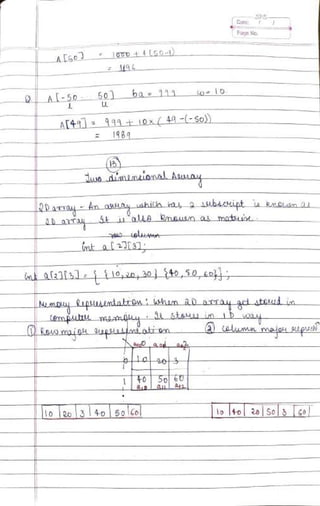 Date: / /
Page No.
A[50] = 1000 + 4 (50-1)
= 1196
Q A[-50 50] ba = 999 w=10
l u
A[49] = 999 + 10 x ( 49 -(-50))
= 1989
Two dimensional Array
2D array - An array which has 2 subscript is known as
2D array. It is also known as matrix.
row column
int a[2][3];
int a[2][3] = { {10, 20, 30} {40, 50, 60}};
Memory Representation: When 2D array get stored in
computer memory. It stores in 1D way
① Row major representation ② column major represen
0 10 20 3
1 40 50 60
10 20 3 40 50 60 10 40 20 50 3 60